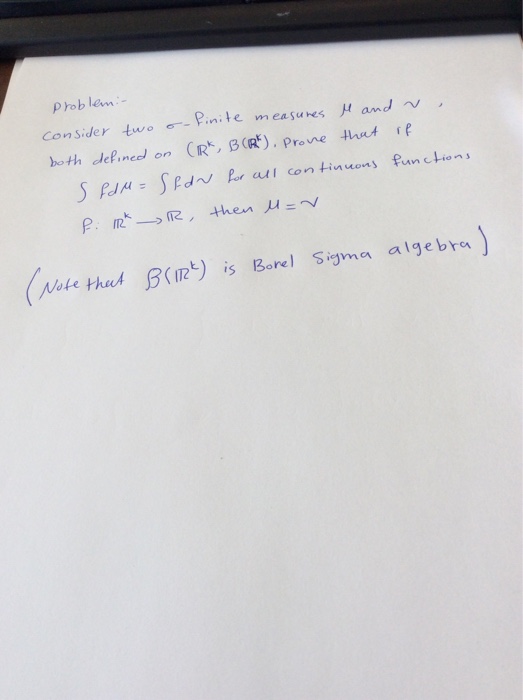 Problem:-
Consider two σ-finite measures μ and ν,
both defined on (ℝᵏ, B(ℝᵏ)). Prove that if
∫ fdμ = ∫ fdν for all continuous functions
f: ℝᵏ → ℝ, then μ = ν
(Note that B(ℝᵏ) is Borel Sigma algebra)